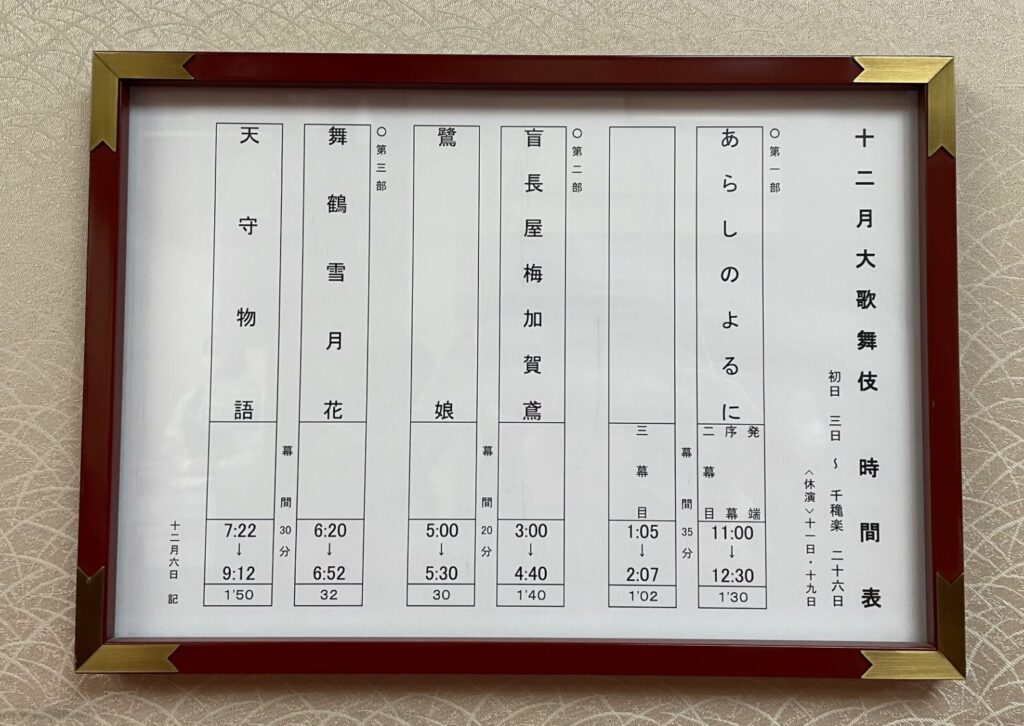 十二月大歌舞伎 時間表
初日 三日 ～ 千穐楽 二十六日
＜休演＞十一日・十九日
○第一部
あらしのよるに
発端
序幕
二幕目
11:00
↓
12:30
1'30
幕間 35分
三幕目
1:05
↓
2:07
1'02
○第二部
盲長屋梅加賀鳶
3:00
↓
4:40
1'40
幕間 20分
鷺娘
5:00
↓
5:30
30
○第三部
舞鶴雪月花
6:20
↓
6:52
32
幕間 30分
天守物語
7:22
↓
9:12
1'50
十二月六日 記